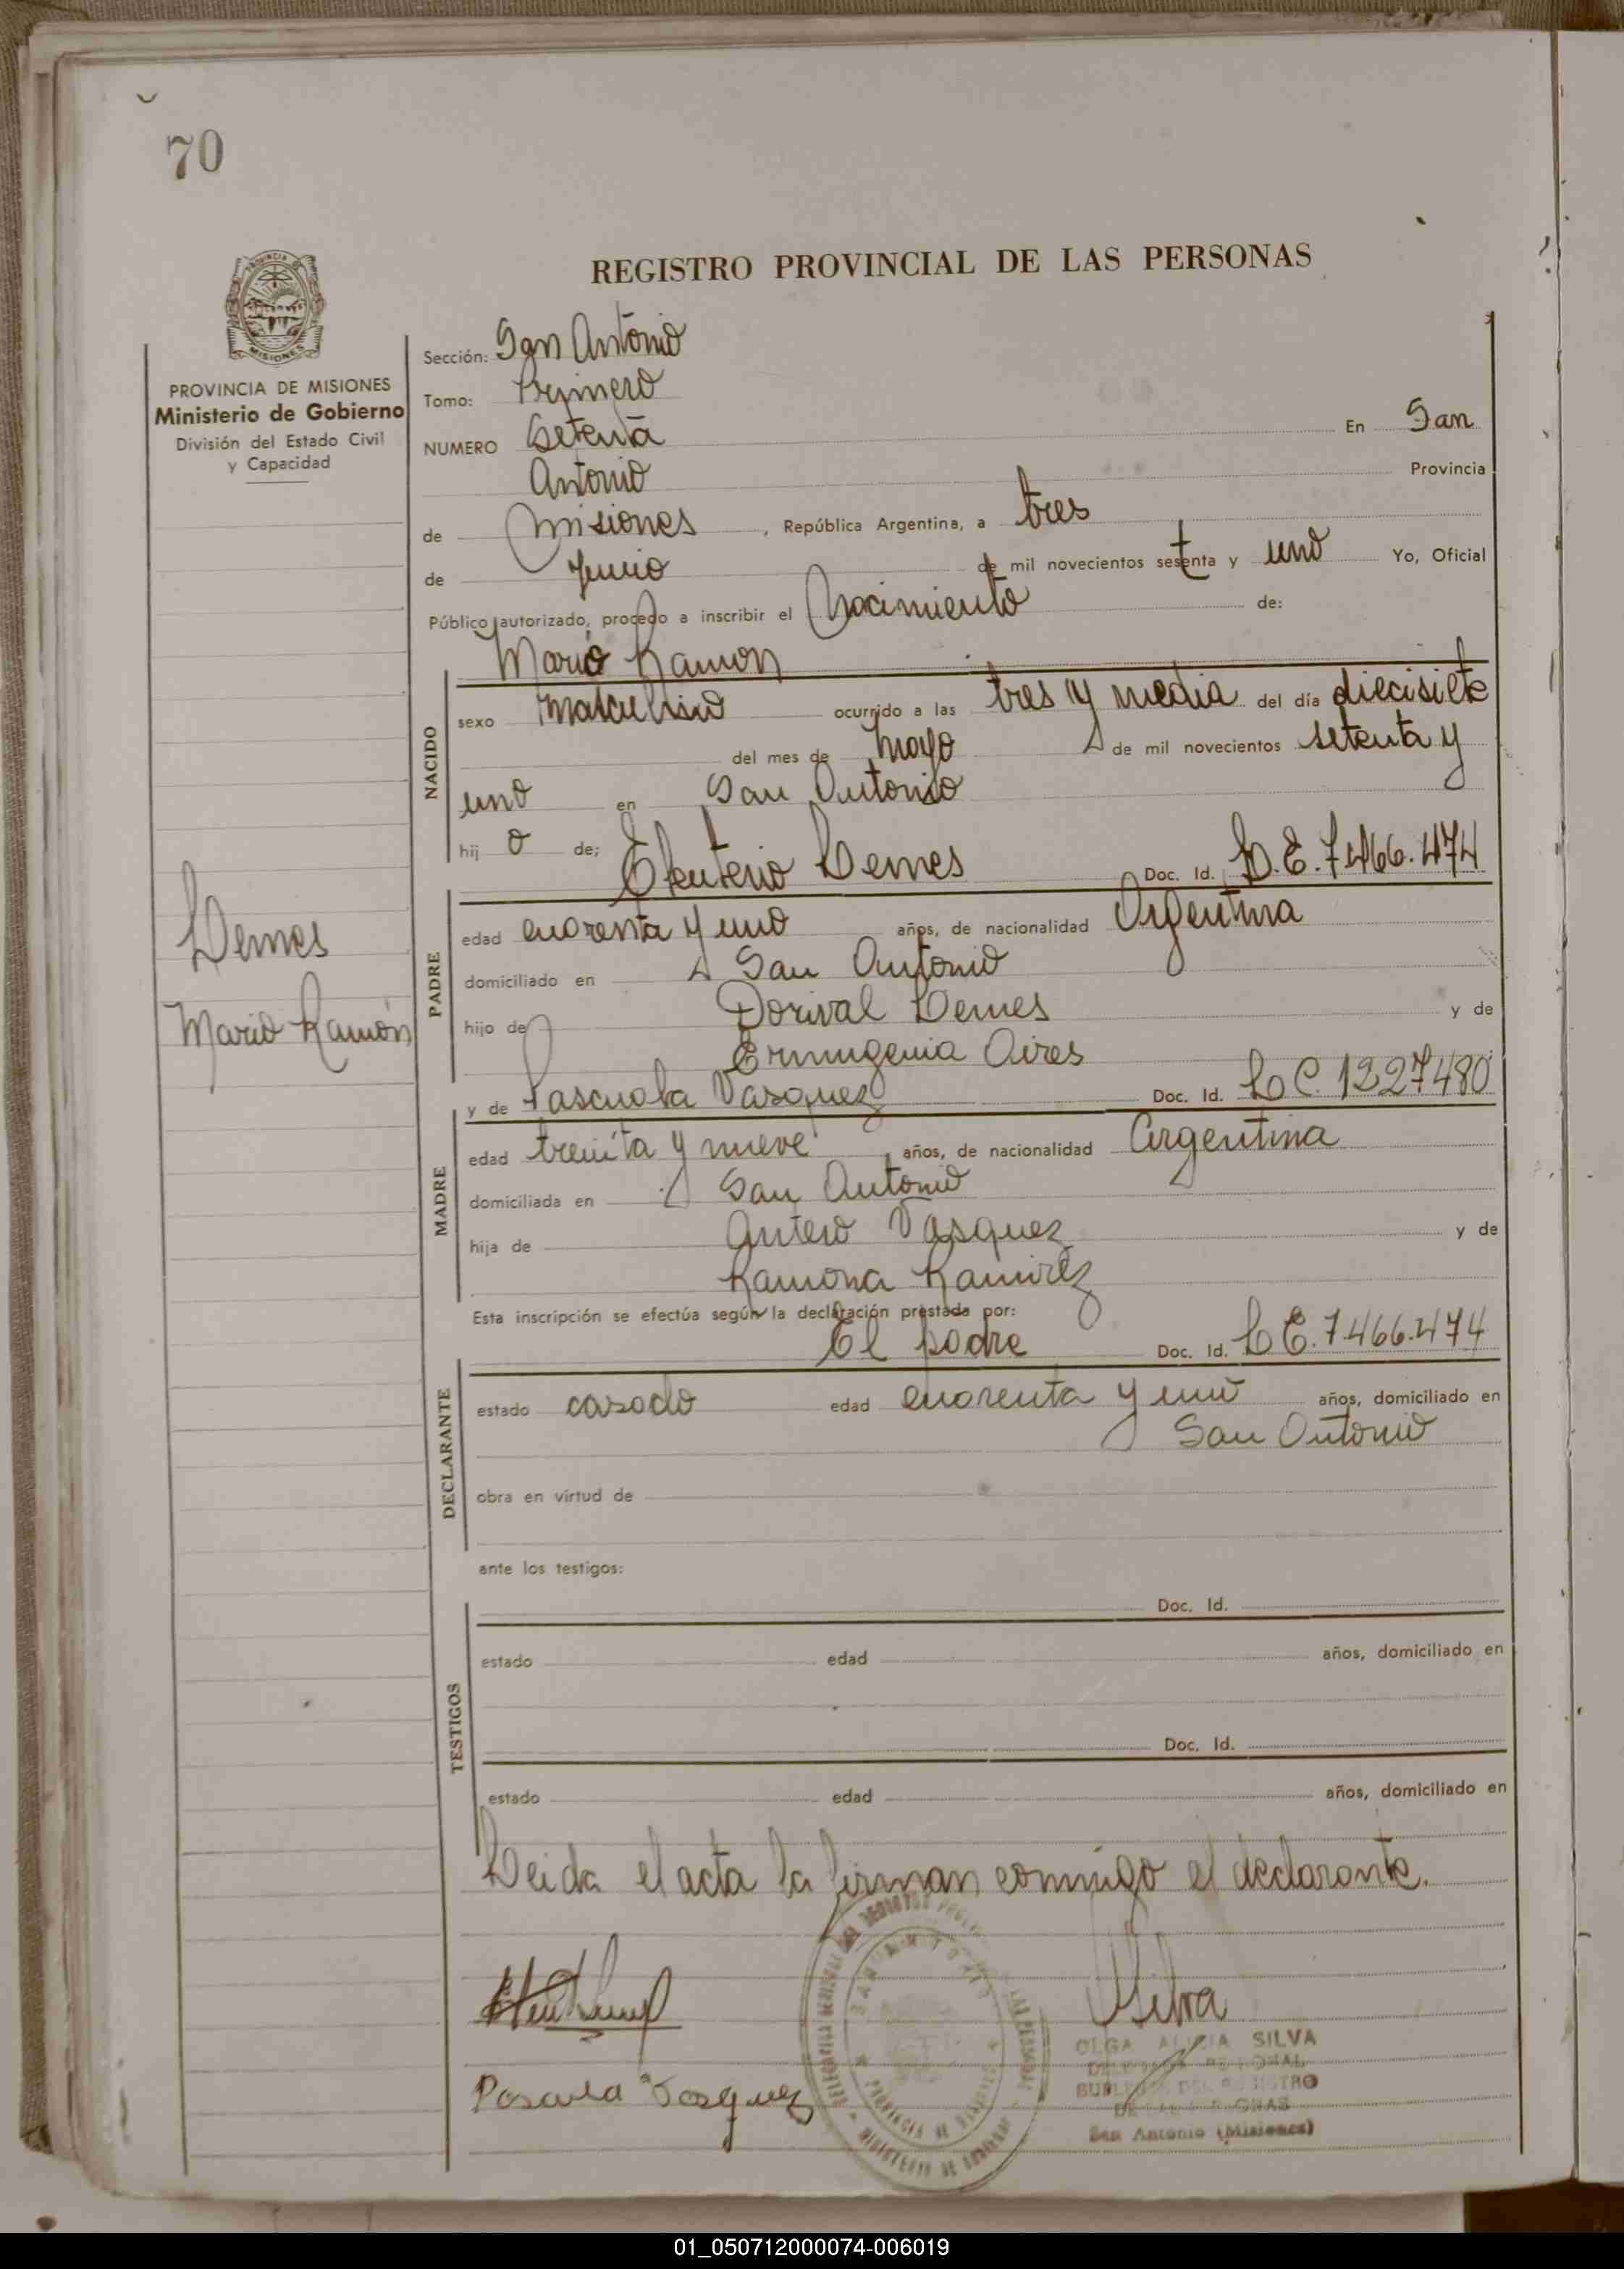 70
REGISTRO PROVINCIAL DE LAS PERSONAS
PROVINCIA DE MISIONES
Ministerio de Gobierno
División del Estado Civil
y Capacidad
Sección: San Antonio
Tomo: Primero
NUMERO Setenta En San
Antonio Provincia
de Misiones, República Argentina, a tres
de Junio de mil novecientos setenta y uno Yo, Oficial
Público autorizado, procedo a inscribir el Nacimiento de:
Mario Ramon
NACIDO
sexo masculino ocurrido a las tres y media del día diecisiete
del mes de mayo de mil novecientos setenta y
uno en San Antonio
hij o de; Eleuterio Lemes Doc. Id. L.E. 7.466.474
Lemes
Mario Ramón
PADRE
edad cuarenta y uno años, de nacionalidad Argentina
domiciliado en San Antonio
hijo de Dorival Lemes y de
Ermugenia Aires
y de Pascuala Vasquez Doc. Id. L C. 1227480
MADRE
edad treinta y nueve años, de nacionalidad Argentina
domiciliada en San Antonio
hija de Antero Vasquez y de
Ramona Ramirez
Esta inscripción se efectúa según la declaración prestada por:
El padre Doc. Id. L E. 7.466.474
DECLARANTE
estado casado edad cuarenta y uno años, domiciliado en
San Antonio
obra en virtud de
ante los testigos:
Doc. Id.
TESTIGOS
estado edad años, domiciliado en
Doc. Id.
estado edad años, domiciliado en
Leida el acta la firman conmigo el declarante.
Silva
OLGA ALICIA SILVA
San Antonio (Misiones)
Pascuala Vasquez
01_050712000074-006019